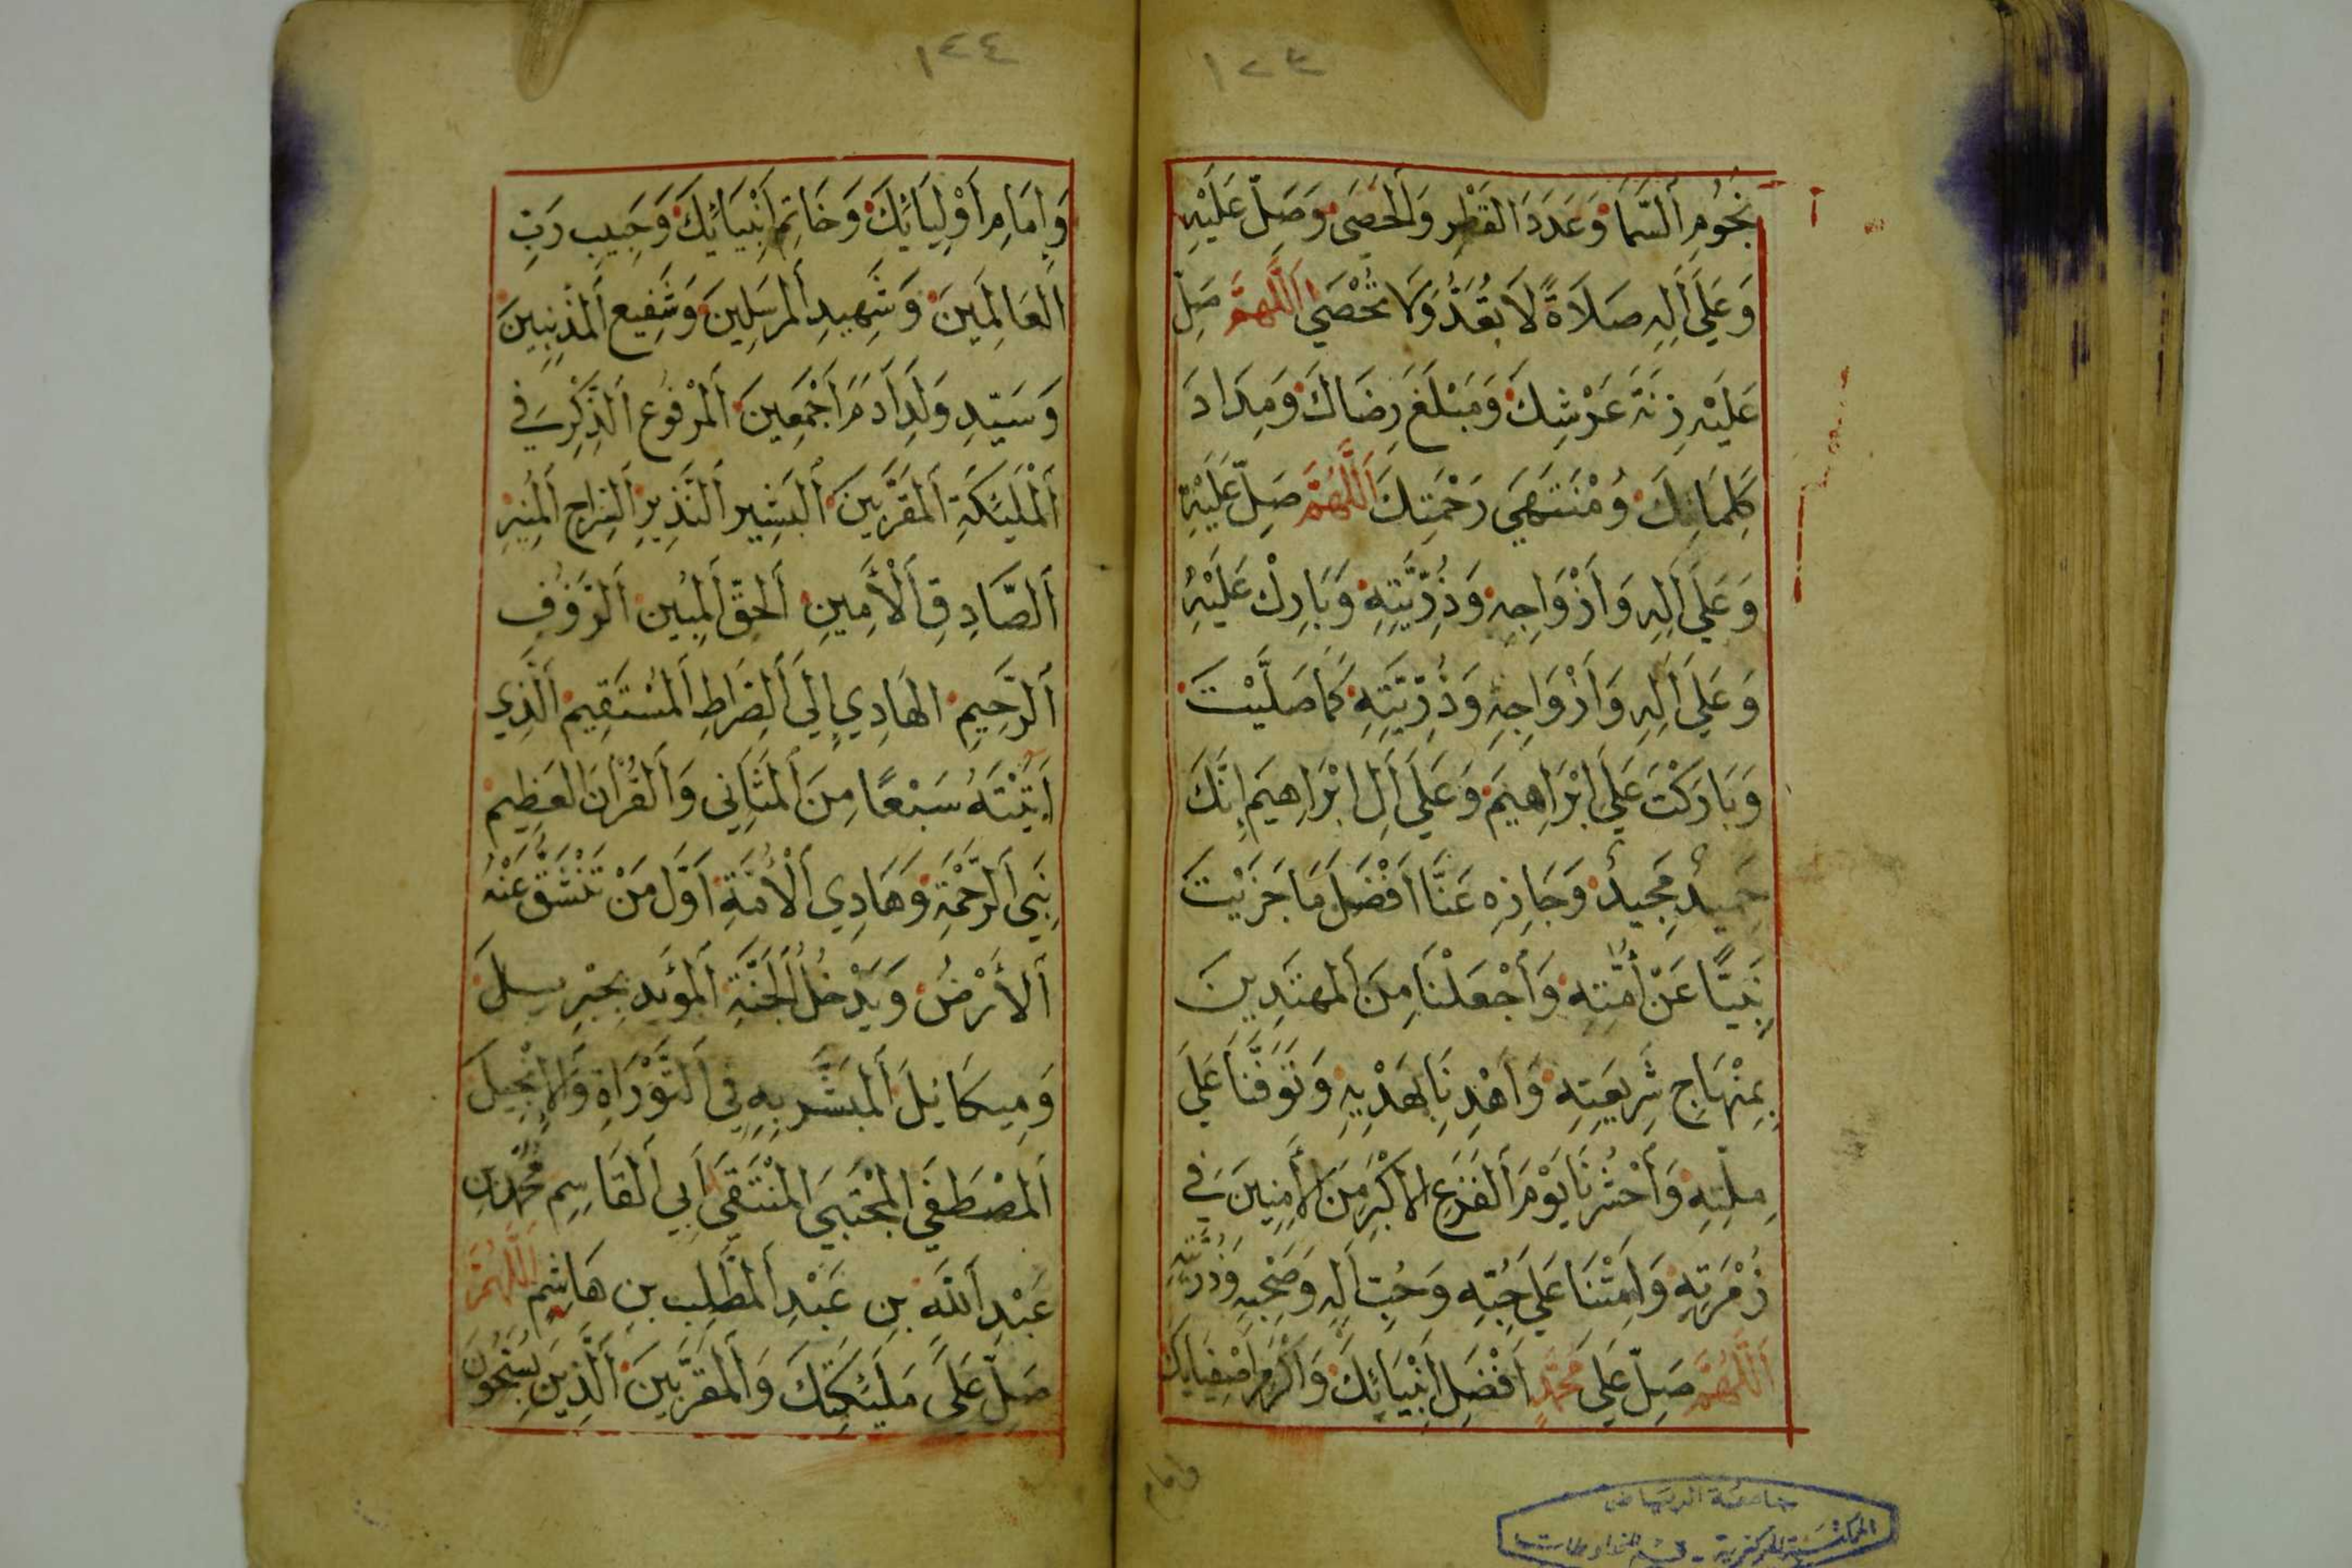 ١٢٣
نُجُومِ السَّمَا وَعَدَدَ القَطْرِ وَالحَصَى وَصَلِّ عَلَيْهِ
وَعَلَى آلِهِ صَلَاةً لَا تُعَدُّ وَلَا تُحْصَى اَللَّهُمَّ صَلِّ
عَلَيْهِ زِنَةَ عَرْشِكَ وَمَبْلَغَ رِضَاكَ وَمِدَادَ
كَلِمَاتِكَ وَمُنْتَهَى رَحْمَتِكَ اَللَّهُمَّ صَلِّ عَلَيْهِ
وَعَلَى آلِهِ وَأَزْوَاجِهِ وَذُرِّيَّتِهِ وَبَارِكْ عَلَيْهِ
وَعَلَى آلِهِ وَأَزْوَاجِهِ وَذُرِّيَّتِهِ كَمَا صَلَّيْتَ
وَبَارَكْتَ عَلَى ابْرَاهِيمَ وَعَلَى آلِ ابْرَاهِيمَ إِنَّكَ
حَمِيدٌ مَجِيدٌ وَجَازِهِ عَنَّا اَفْضَلَ مَا جَزَيْتَ
نَبِيًّا عَنْ أُمَّتِهِ وَاَجْعَلْنَا مِنَ اَلمُهتَدِينَ
بِمِنْهَاجِ شَرِيعَتِهِ وَاَهْدِنَا بِهَدْيِهِ وَتَوَفَّنَا عَلَى
مِلَّتِهِ وَاَحْشُرْنَا يَوْمَ اَلفَزَعِ الاَكْبَرِ مِنَ الآمِنِينَ فِي
زُمْرَتِهِ وَاَمِتْنَا عَلَى حُبِّهِ وَحُبِّ آلِهِ وَصَحْبِهِ وَذُرِّيَّتِهِ
اَللَّهُمَّ صَلِّ عَلَى مُحَمَّدٍ اَفْضَلِ اَنْبِيَائِكَ وَاَكْرَمِ اَصْفِيَائِكَ
وامام
جامعة الرياض
المكتبة المركزية - قسم المخطوطات
١٢٤
وَاِمَامِ اَوْلِيَائِكَ وَخَاتِمِ اَنْبِيَائِكَ وَحَبِيبِ رَبِّ
اَلعَالَمِينَ وَشَهِيدِ اَلمُرسَلِينَ وَشَفِيعِ اَلمُذْنِبِينَ
وَسَيِّدِ وَلَدِ آدَمَ اَجْمَعِينَ اَلمَرْفُوعِ اَلذِّكْرِ فِي
اَلمَلٰئِكَةِ اَلمُقَرَّبِينَ اَلبَشِيرِ اَلنَّذِيرِ اَلسِّرَاجِ اَلمُنِيرِ
اَلصَّادِقِ اَلأَمِينِ اَلحَقِّ اَلمُبِينِ اَلرَّؤُفِ
اَلرَّحِيمِ الهَادِي إِلَى اَلصِّرَاطِ اَلمُسْتَقِيمِ اَلَّذِي
آتَيْتَهُ سَبْعًا مِنَ اَلمَثَانِي وَاَلقُرْآنَ العَظِيمَ
نَبِيِّ اَلرَّحْمَةِ وَهَادِي اَلأُمَّةِ اَوَّلِ مَنْ تَنْشَقُّ عَنْهُ
اَلأَرْضُ وَيَدْخُلُ اَلجَنَّةَ اَلمُؤَيَّدِ بِجِبْرِيلَ
وَمِيكَائِلَ اَلمُبَشَّرِ بِهِ فِي اَلتَّوْرَاةِ وَالإِنْجِيلِ
اَلمُصْطَفَى المُجْتَبَى المُنْتَقَى اَبِي اَلقَاسِمِ مُحَمَّدِ بنِ
عَبْدِ اَللّٰهِ بنِ عَبْدِ اَلمُطَّلِبِ بنِ هَاشِمٍ اَللَّهُمَّ
صَلِّ عَلَى مَلٰئِكَتِكَ وَاَلمُقَرَّبِينَ اَلَّذِينَ يُسَبِّحُونَ